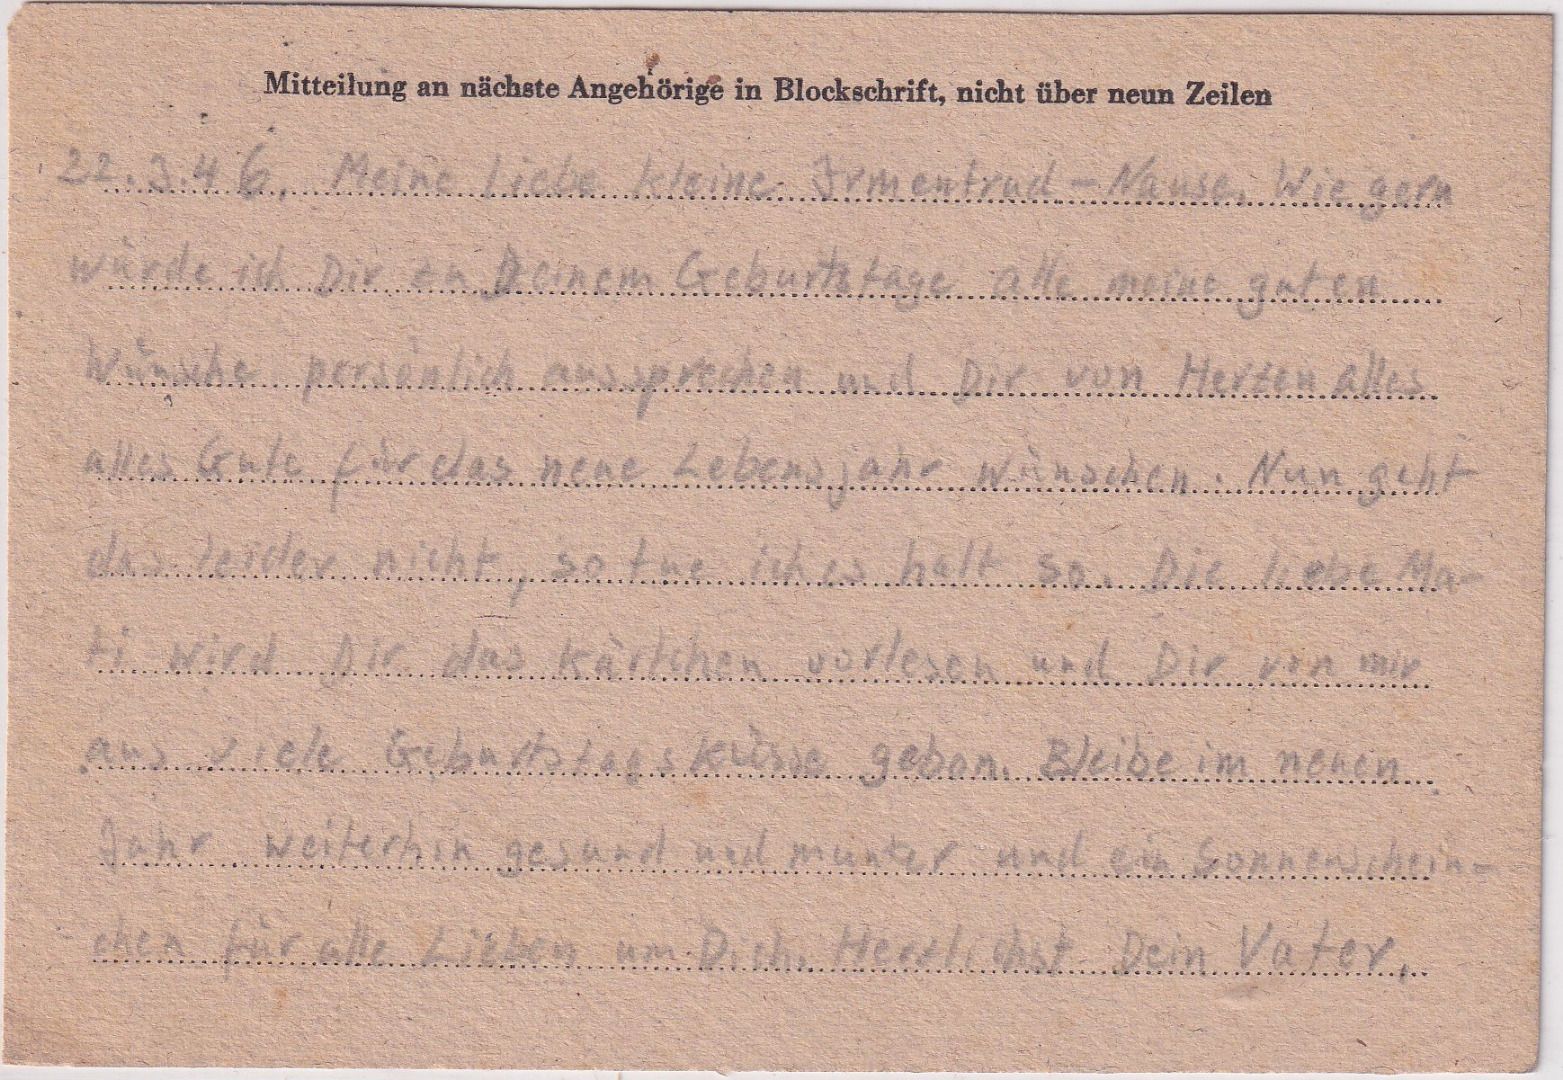 Mitteilung an nächste Angehörige in Blockschrift, nicht über neun Zeilen
22.3.46. Meine liebe kleine Irmentrud-Nause. Wie gern
würde ich Dir zu Deinem Geburtstage alle meine guten
Wünsche persönlich aussprechen und Dir von Herzen alles
alles Gute für das neue Lebensjahr wünschen. Nun geht
das leider nicht, so tue ich es halt so. Die liebe Ma-
ti wird Dir das Kärtchen vorlesen und Dir von mir
aus viele Geburtstagsküsse geben. Bleibe im neuen
Jahr weiterhin gesund und munter und ein Sonnenschein-
chen für alle Lieben um Dich. Herzlichst Dein Vater.